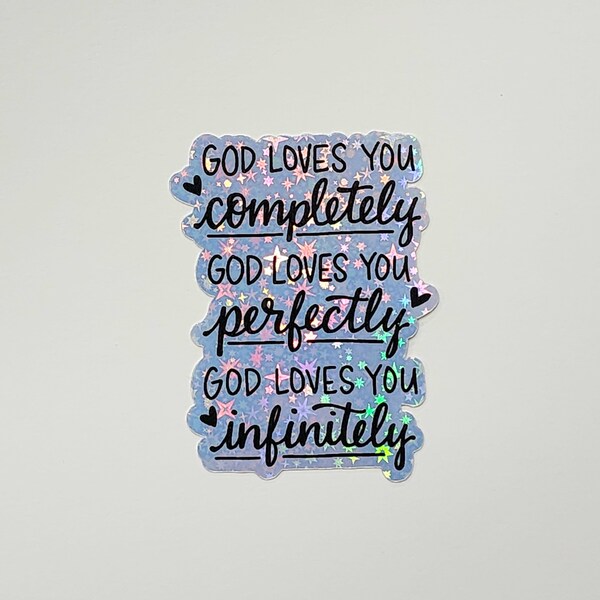 GOD LOVES YOU
completely
GOD LOVES YOU
perfectly
GOD LOVES YOU
infinitely